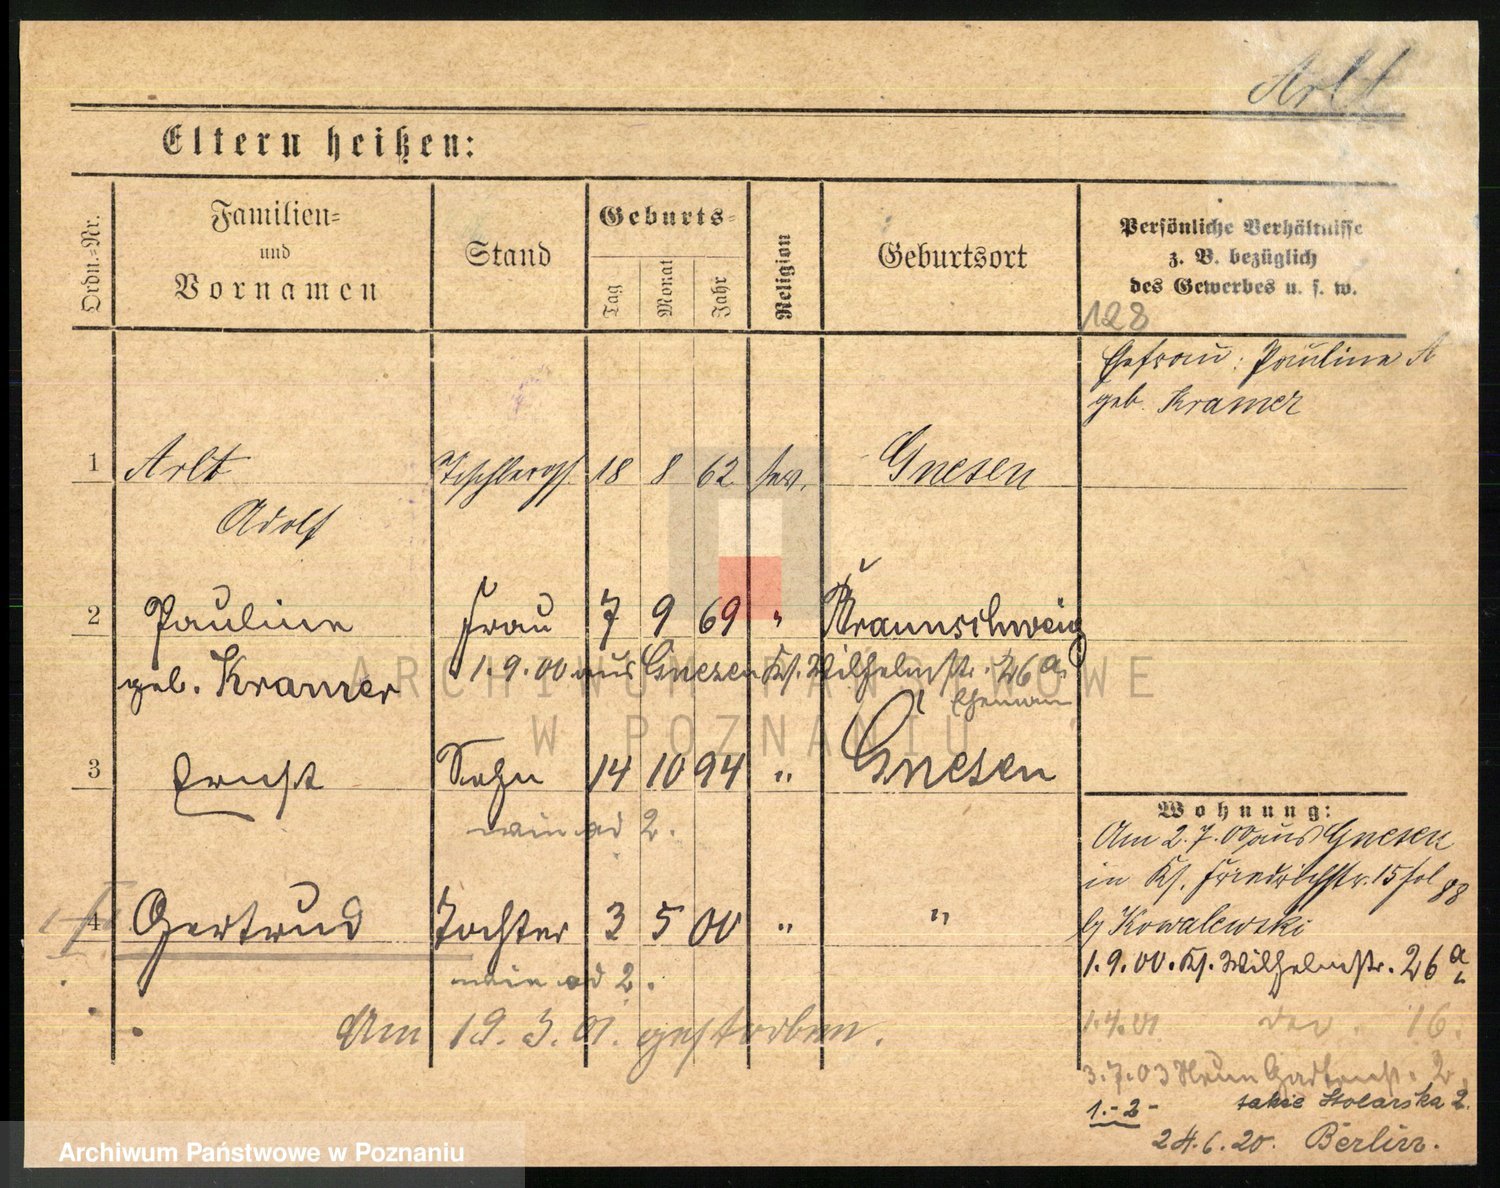 Arlt
Eltern heißen:
Ordn.-Nr.
Familien-
und
Vornamen
Stand
Geburts-
Tag
Monat
Jahr
Religion
Geburtsort
Persönliche Verhältnisse
z. B. bezüglich
des Gewerbes u. s. w.
128
Ehefrau: Pauline A
geb. Kramer
1 Arlt Tischlerges. 18 8 62 ev. Gnesen
Adolf
2 Pauline Frau 7 9 69 " Braunschweig
geb. Kramer 1.9.00 aus Gnesen Kl. Wilhelmstr. 26a
Ehemann
3 Ernst Sohn 14 10 94 " Gnesen
wie ad 2.
4 Gertrud Tochter 3 5 00 " "
wie ad 2.
Am 19.3.01. gestorben.
Wohnung:
Am 2.7.00 aus Gnesen
in Kl. Friedrichstr. 15
bei Kowalewski
1.9.00. Kl. Wilhelmstr. 26a
1.4.01 16.
3.7.03 Neue Gartenstr. 2.
1.-2- takie Stolarska 2.
24.6.20. Berlin.
ARCHIWUM PAŃSTWOWE
W POZNANIU
Archiwum Państwowe w Poznaniu